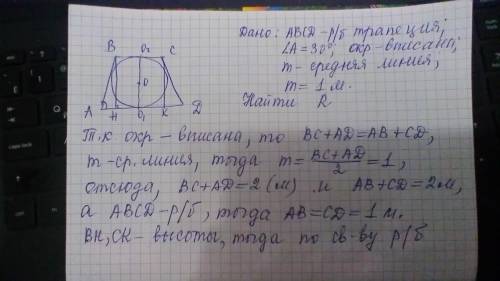 Дано: ABCD-р/б трапеция;
∠A=30°; окр-вписана;
m-средняя линия,
m=1м.
Найти R
B O₂ C
O
A H O₁ K D
Т.к окр-вписана, то BC+AD=AB+CD,
m-ср. линия, тогда m=(BC+AD)/2=1,
отсюда, BC+AD=2(м) и AB+CD=2м,
а ABCD-р/б, тогда AB=CD=1м.
BH, CK-высоты, тогда по св-ву р/б